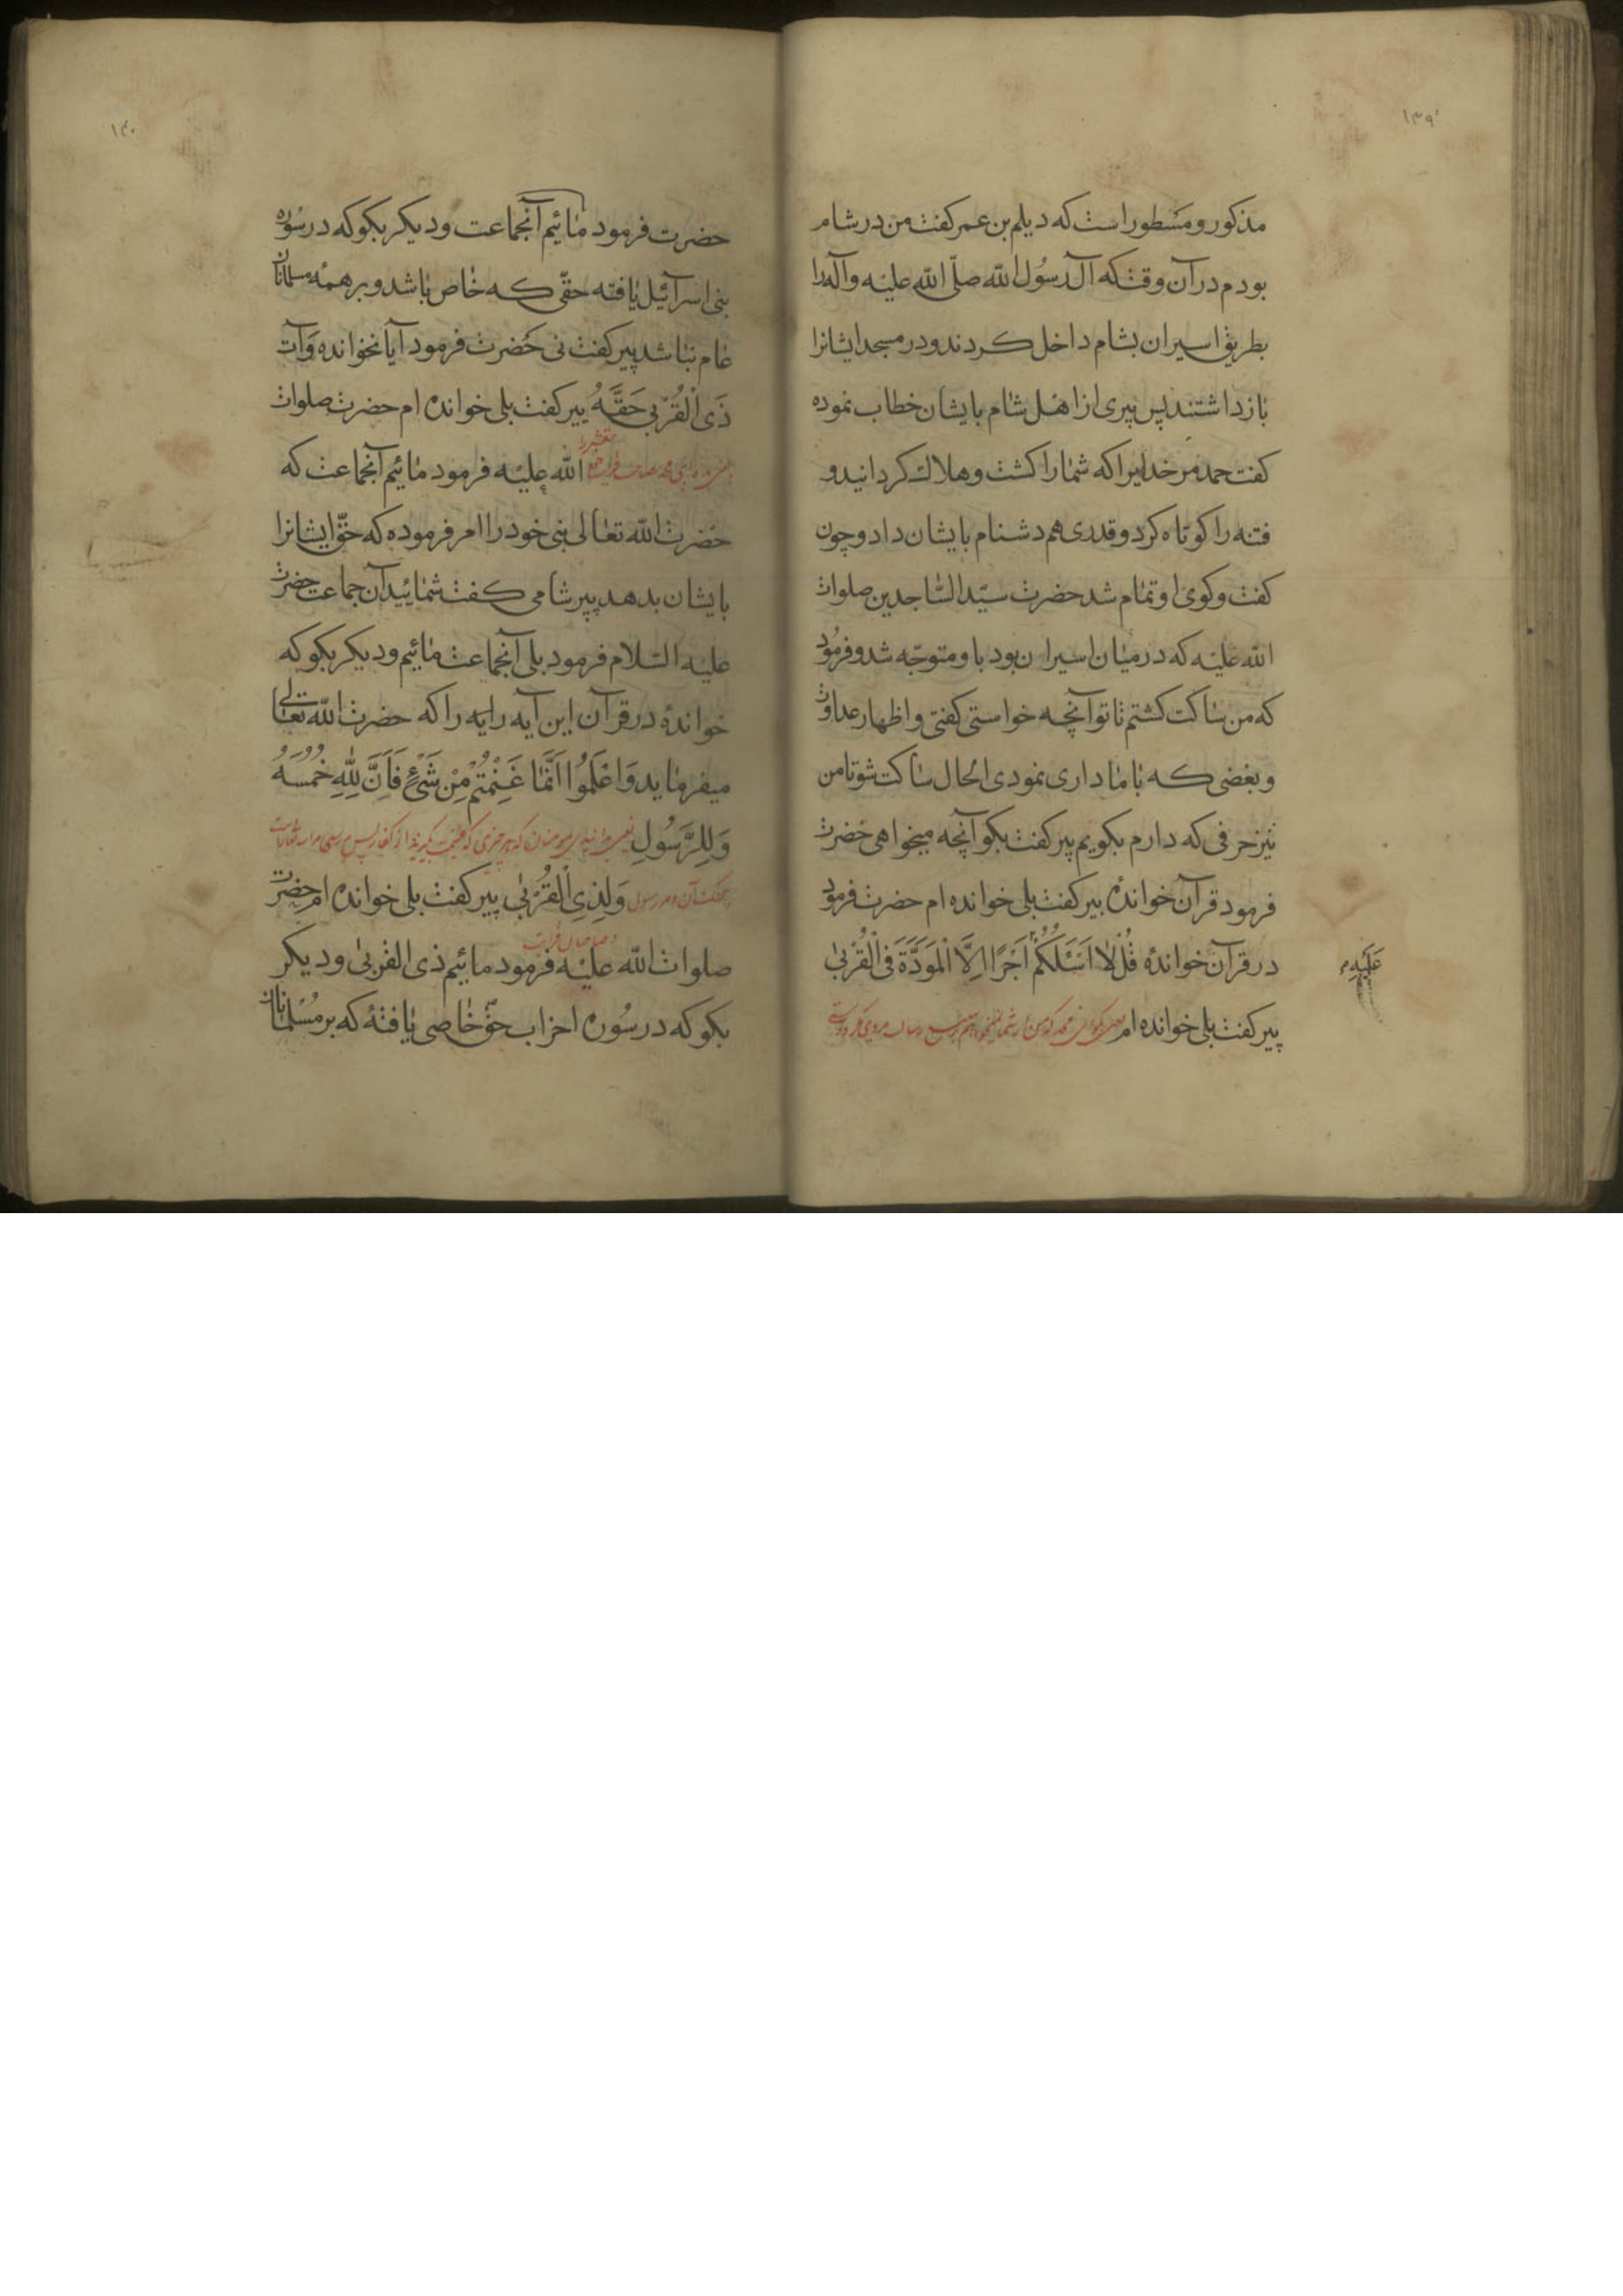 ۱۳۹
مذکور و مسطور است که دیلم بن عمر کفت من در شام
بودم در آن وقت که آل رسُول الله صلّی الله علیه و آله را
بطریق اسیران بشام داخل کردند و در مسجد ایشانرا
بازداشتند پس پیری از اهل شام بایشان خطاب نموده
کفت حمد مر خدایرا که شما را کشت و هلاک کردانید و
فتنه را کوتاه کرد و قدری هم دشنام بایشان داد و چون
کفت و کوی او تمام شد حضرت سیّد السّاجدین صلوات
الله علیه که در میان اسیران بود باو متوجّه شد و فرمُود
که من ساکت کشتم تا تو آنچه خواستی کفتی و اظهار عداوت
و بغضی که باما داری نمودی الحال ساکت شو تا من
نیز حرفی که دارم بکویم پیر کفت بکو آنچه میخواهی حضرت
فرمود قرآن خواندۀ پیر کفت بلی خوانده ام حضرت فرمود
در قرآن خواندۀ قُلْ لا اَسْئَلُکُمْ اَجْرًا اِلَّا الْمَوَدَّةَ فِی الْقُرْبیٰ
عَلَیْهِ
پیر کفت بلی خوانده ام
۱۴۰
حضرت فرمود مائیم آنجماعت و دیکر بکو که در سُوره
بنی اسرآئیل یافته حقّی که خاص باشد و بر همهٔ مسلمانان
عام نباشد پیر کفت نی حضرت فرمود آیا نخوانده وَآتِ
ذَی الْقُرْبی حَقَّهُ پیر کفت بلی خوانده ام حضرت صلوات
الله علیه فرمود مائیم آنجماعت که
حضرت الله تعالی نبی خود را امر فرموده که حقّ ایشانرا
بایشان بدهد پیر شامی کفت شمائید آن جماعت حضرت
علیه السّلام فرمود بلی آنجماعت مائیم و دیکر بکو که
خواندۀ در قرآن این آیه رایه را که حضرت الله تعالی
میفرماید وَاعْلَمُوا اَنَّمَا غَنِمْتُمْ مِنْ شَیْءٍ فَاَنَّ لِلّٰهِ خُمُسَهُ
وَلِلرَّسُولِ
وَلِذِی الْقُرْبیٰ پیر کفت بلی خوانده ام حضرت
صلوات الله علیه فرمود مائیم ذی القربیٰ و دیکر
بکو که در سُوره احزاب حقّ خاصی یافتۀ که بر مُسْلمانان